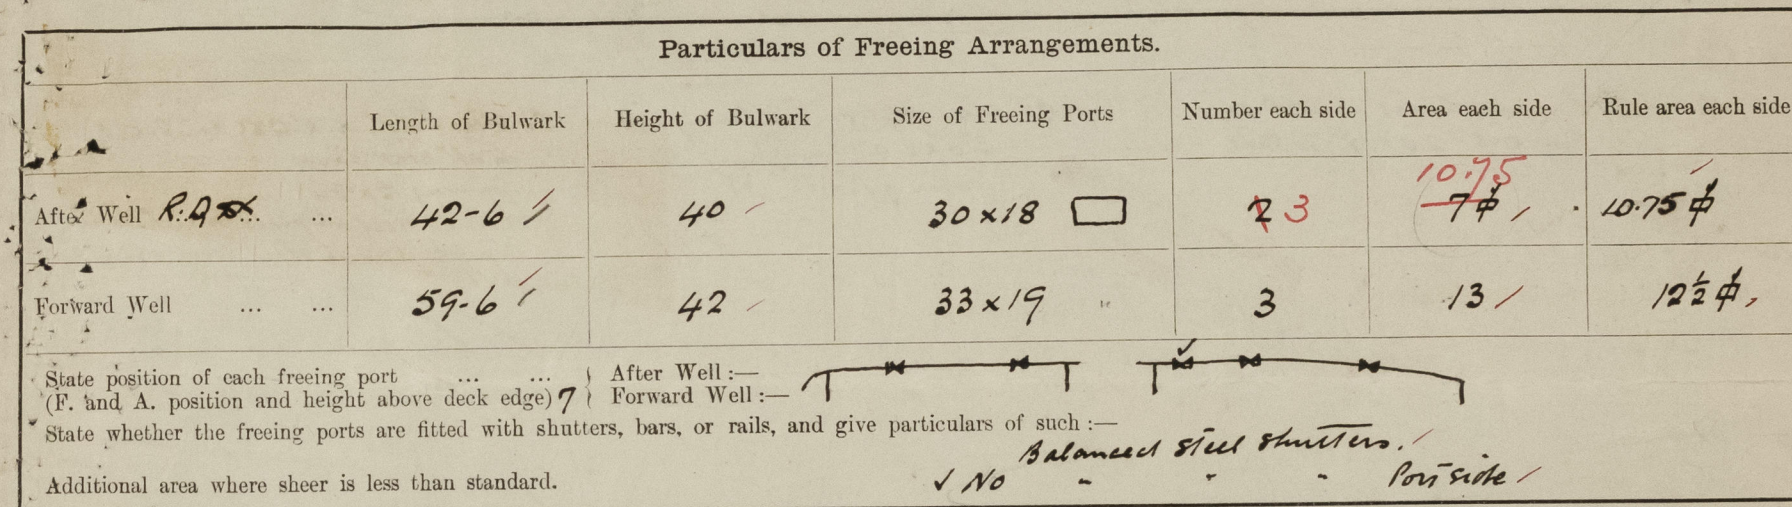 Particulars of Freeing Arrangements.
Length of Bulwark Height of Bulwark Size of Freeing Ports Number each side Area each side Rule area each side
10.75
After Well ... 42-6 40 30 x 18 2 3 7 10.75
Forward Well ... ... 59-6 42 33 x 19 " 3 13 12½
State position of each freeing port ... ... After Well :—
(F. and A. position and height above deck edge) 7 Forward Well :—
State whether the freeing ports are fitted with shutters, bars, or rails, and give particulars of such :—
Balanced steel shutters.
Additional area where sheer is less than standard. ✓ No " " " Port side